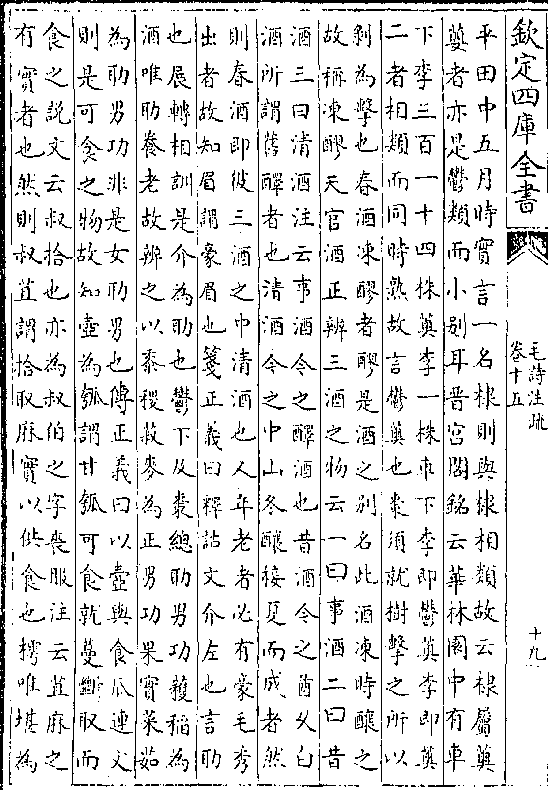 欽定四庫全書
毛詩注疏
卷十五
十九
平田中五月時實言一名棣則與棣相類故云棣屬薁
蘡者亦是鬱類而小别耳晋宫閣銘云華林園中有車
下李三百一十四株薁李一株車下李即鬱薁李即薁
二者相類而同時熟故言鬱薁也棗須就樹擊之所以
剝為擊也春酒凍醪者醪是酒之别名此酒凍時釀之
故稱凍醪天官酒正辨三酒之物云一曰事酒二曰昔
酒三曰清酒注云事酒今之醳酒也昔酒今之酋乆白
酒所謂舊醳者也清酒今之中山冬釀接夏而成者然
則春酒即彼三酒之中清酒也人年老者必有豪毛秀
出者故知眉謂豪眉也箋正義曰釋詁文介左也言助
也展轉相訓是介為助也鬱下及棗總助男功穫稻為
酒唯助養老故辨之以黍稷菽麥為正男功果實菜茹
為助男功非是女助男也傳正義曰以壺與食瓜連文
則是可食之物故知壺為瓠謂甘瓠可食就蔓斷取而
食之説文云叔拾也亦為叔伯之字喪服注云苴麻之
有實者也然則叔苴謂拾取麻實以供食也樗唯堪為